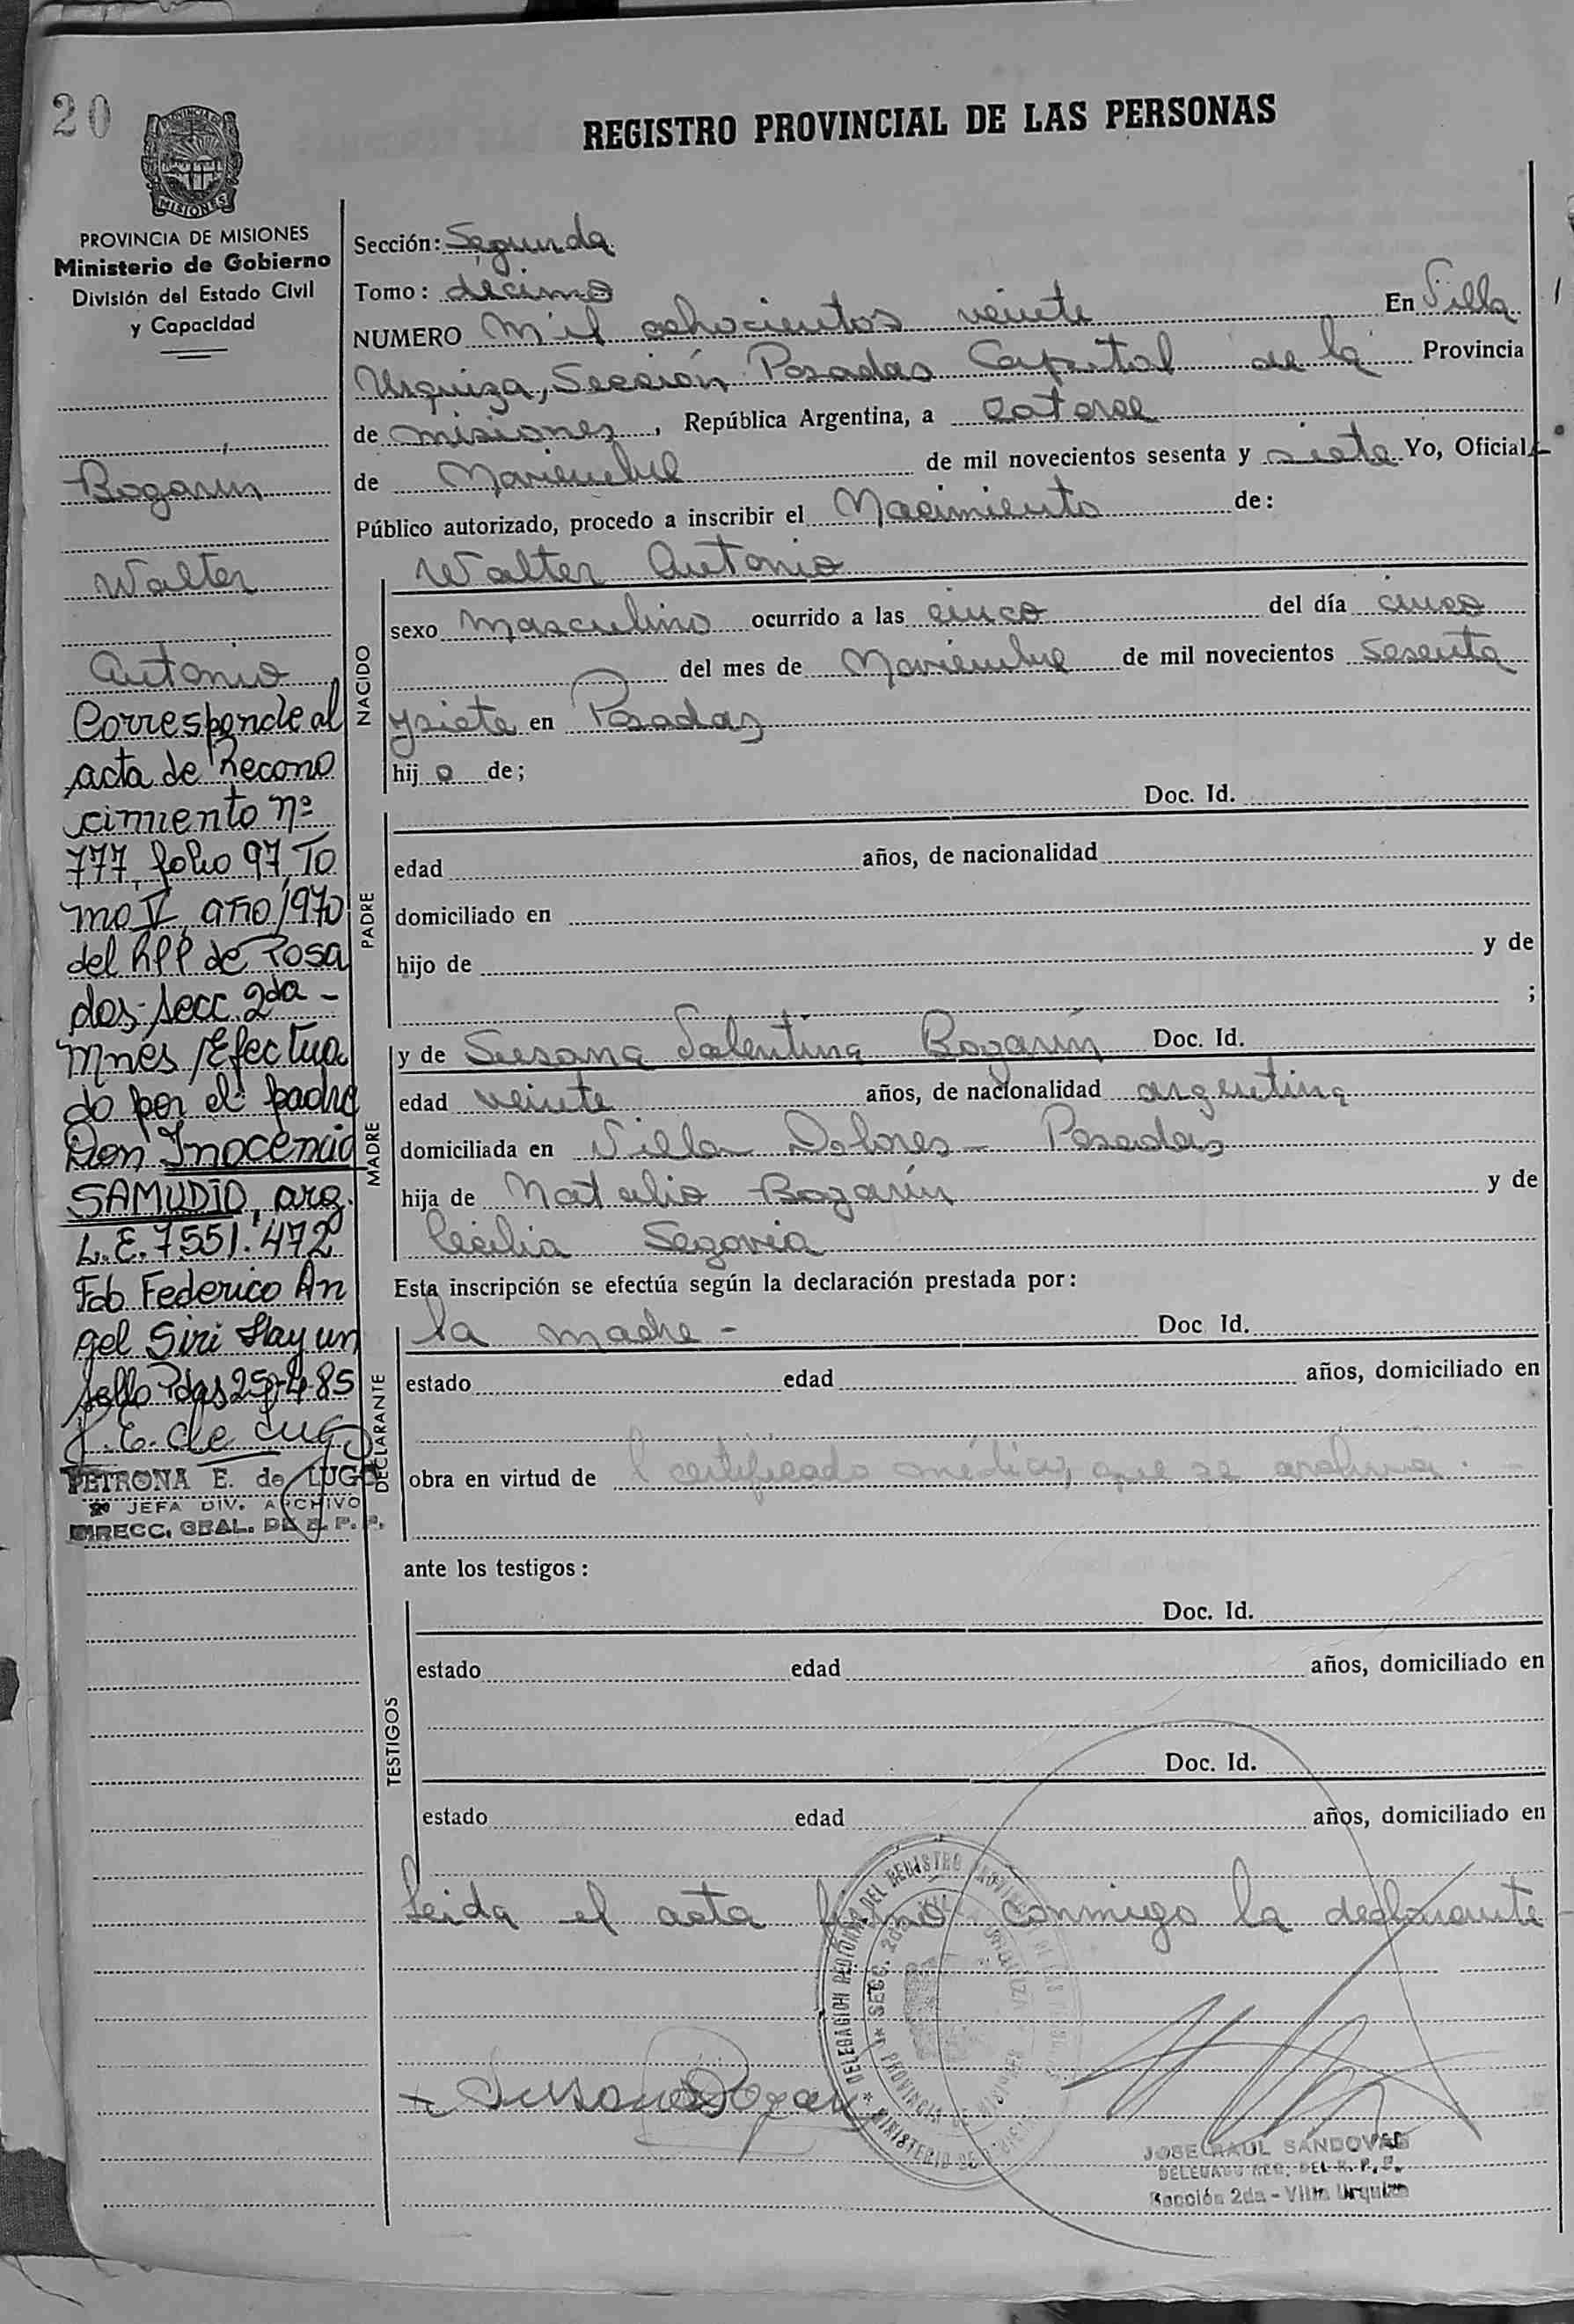 20
REGISTRO PROVINCIAL DE LAS PERSONAS
MISIONES
PROVINCIA DE MISIONES
Ministerio de Gobierno
División del Estado Civil
y Capacidad
Bogarin
Walter
Antonio
Corresponde al
acta de Recono
cimiento nº
777, folio 97, To
mo V, año 1970
del RPP de Posa
das, secc. 2da -
Mnes, Efectua
do por el padre
Don Inocencio
SAMUDIO, arg.
L.E. 7.551.472
Fdo Federico An
gel Siri Hay un
sello Pdas 25-4-85
PETRONA E. de LUGO
2º JEFA DIV. ARCHIVO
DIRECC. GRAL. DE R. P. P.
Sección: Segunda
Tomo: décimo
NUMERO Mil ochocientos veinte En Villa
Urquiza, Sección Posadas Capital de la Provincia
de misiones, República Argentina, a catorce
de Noviembre de mil novecientos sesenta y siete Yo, Oficial
Público autorizado, procedo a inscribir el Nacimiento de:
NACIDO
Walter Antonio
sexo Masculino ocurrido a las cinco del día cinco
del mes de Noviembre de mil novecientos sesenta
y siete en Posadas
hijo de;
PADRE
Doc. Id.
edad años, de nacionalidad
domiciliado en
hijo de y de
;
MADRE
y de Susana Valentina Bogarín Doc. Id.
edad veinte años, de nacionalidad argentina
domiciliada en Villa Dolores - Posadas
hija de Natalio Bogarín y de
Cecilia Segovia
Esta inscripción se efectúa según la declaración prestada por:
DECLARANTE
la madre - Doc Id.
estado edad años, domiciliado en
obra en virtud de l certificado médico, que se archiva. -
ante los testigos:
TESTIGOS
Doc. Id.
estado edad años, domiciliado en
Doc. Id.
estado edad años, domiciliado en
Leida el acta firmó conmigo la declarante
JOSE RAUL SANDOVAL
DELEGADO REG. DEL R. P. P.
Sección 2da - Villa Urquiza